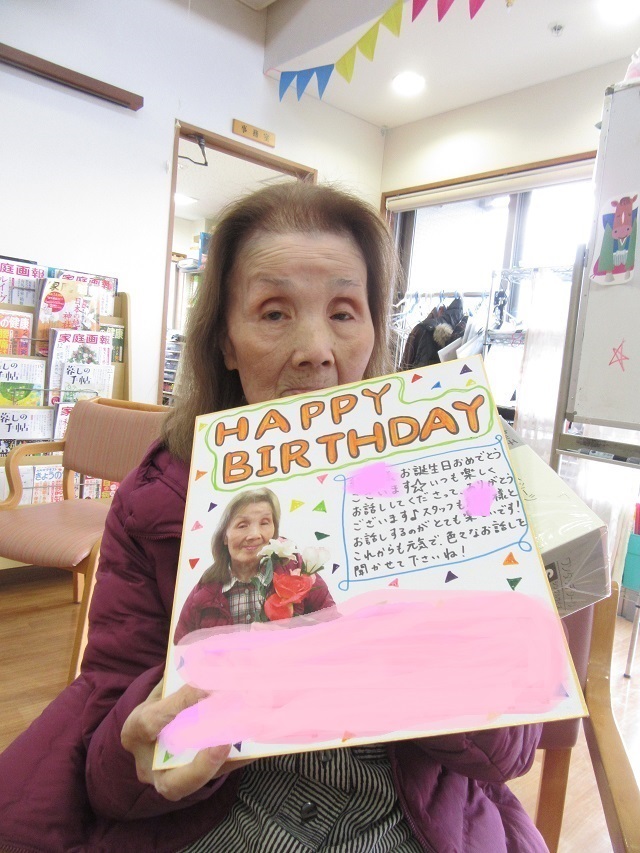 事務室
家庭画報
家庭画報
家庭画報
暮しの手帖
暮しの手帖
HAPPY
BIRTHDAY
お誕生日おめでとう
ございます☆いつも楽しく
お話ししてくださって、りがとう
ございます♪スタッフも様と
お話しするのがとても楽いです!
これからも元気で、色々なお話しを
聞かせて下さいね!